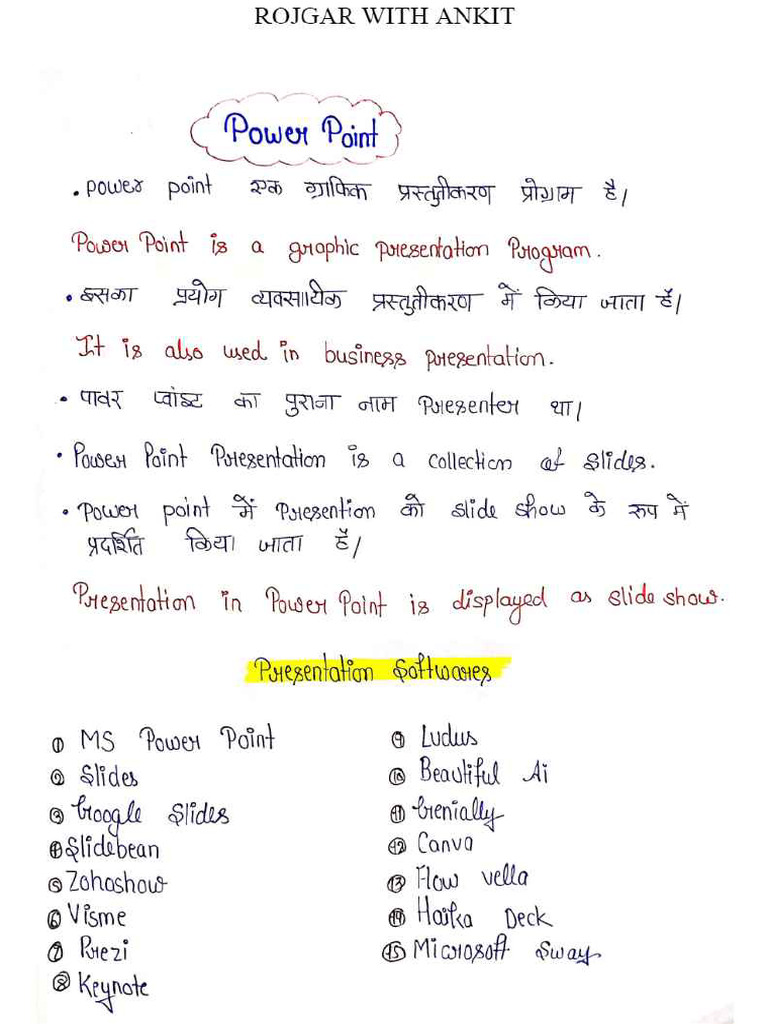 ROJGAR WITH ANKIT
Power Point
• power point एक ग्राफिक प्रस्तुतीकरण प्रोग्राम है।
Power Point is a graphic presentation Program.
• इसका प्रयोग व्यवसायिक प्रस्तुतीकरण में किया जाता है।
It is also used in business presentation.
• पावर प्वांइट का पुराना नाम Presenter था।
• Power Point Presentation is a collection of slides.
• Power point में Presention को slide show के रूप में
प्रदर्शित किया जाता है।
Presentation in Power Point is displayed as slide show.
Presentation Softwares
① MS Power Point
② Slides
③ Google Slides
④ Slidebean
⑤ Zohoshow
⑥ Visme
⑦ Prezi
⑧ Keynote
⑨ Ludus
⑩ Beautiful Ai
⑪ Genially
⑫ Canva
⑬ Flow vella
⑭ Haika Deck
⑮ Microsoft Sway